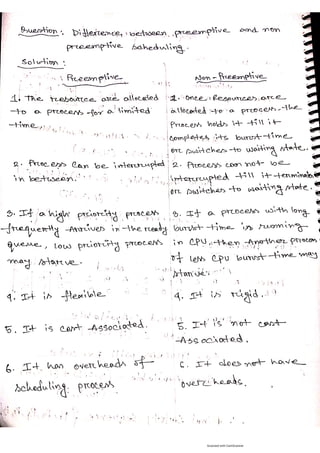 Question: Difference between preemptive and non
preemptive scheduling.
Solution:
Preemptive
1. The resource are allocated
to a process for a limited
time.
2. Process can be interrupted
in between.
3. If a high priority process
frequently arrives in the ready
queue, low priority process
may starve.
4. It is flexible
5. It is cost Associated.
6. It has overheads of
scheduling process
Non-Preemptive
1. Once Resources are
allocated to a process, the
process holds it till it
completes its burst time
or switches to waiting state.
2. Process can not be
interrupted till it terminates
or switches to waiting state.
3. If a process with long
burst time is running
in CPU, then Another process
of less CPU burst time may
starve.
4. It is rigid.
5. It is not cost
Associated.
6. It does not have
overheads.
Scanned with CamScanner